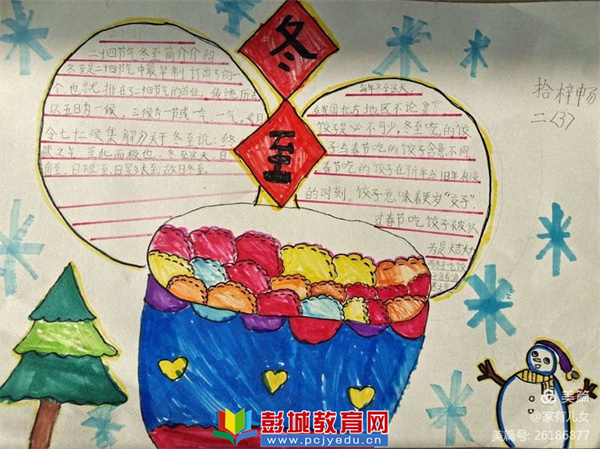 冬
至
二十四节气冬至简介介绍
冬至是二十四节气中最早制订出的一
个也
排在二十四节气的首位。传统
以五日为一候,三候为一节或一气,
令七十候集解》关于冬至说:终
藏之气,至此而极也。冬至这天,日
南至,日短至,日影长至,故曰冬至。
每年冬至这天,
在我国北方地区不论
饺子是必不可少,冬至吃的饺
子与春节吃的饺子含意不同
春节吃的饺子在新年与旧年相交
的时刻,饺子意味着更岁“交子”,
过春节吃饺子被认
为是大吉大
拾梓畅
二<3>
彭城教育网
www.pcjyedu.cn
美篇
@家有儿女
美篇号: 26186877